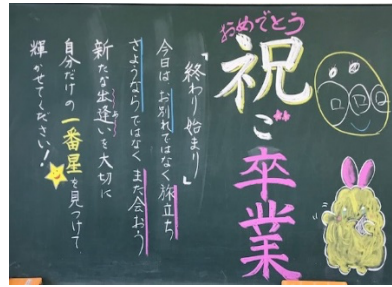 おめでとう
祝ご卒業
「終わり始まり」
今日はお別れではなく旅立ち
さようならではなくまた会おう
新たな出逢いを大切に
自分だけの一番星を見つけて
輝かせてください!